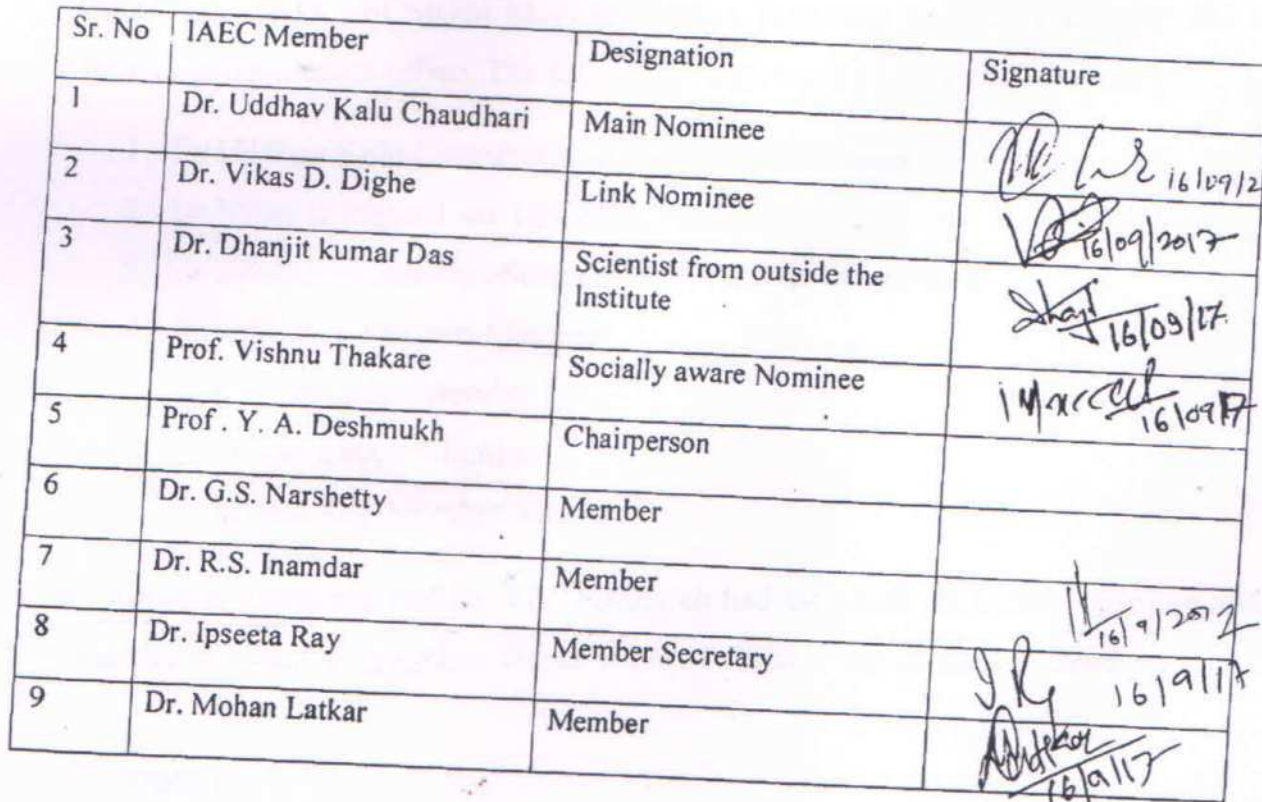 Sr. No IAEC Member Designation Signature
1 Dr. Uddhav Kalu Chaudhari Main Nominee 16/09/2
2 Dr. Vikas D. Dighe Link Nominee 16/09/2017
3 Dr. Dhanjit kumar Das Scientist from outside the
Institute 16/09/17
4 Prof. Vishnu Thakare Socially aware Nominee 16/09/17
5 Prof . Y. A. Deshmukh Chairperson
6 Dr. G.S. Narshetty Member
7 Dr. R.S. Inamdar Member 16/9/2017
8 Dr. Ipseeta Ray Member Secretary 16/9/17
9 Dr. Mohan Latkar Member 16/9/17